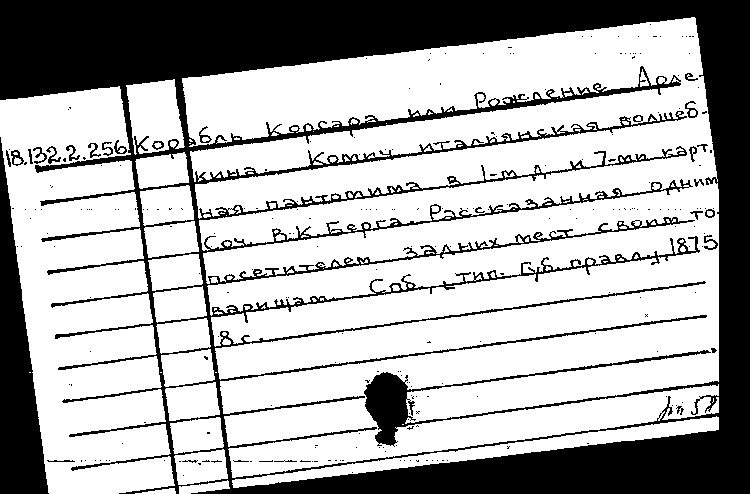 18.132.2.256. Корабль Корсара или Рождение Арле-
кина. Комич. итальянская, волшеб-
ная пантомима в 1-м д. и 7-ми карт.
Соч. В.К. Берга. Рассказанная одним
посетителем задних мест своим то-
варищам. Спб., [тип. Губ. правл.], 1875
8 с.